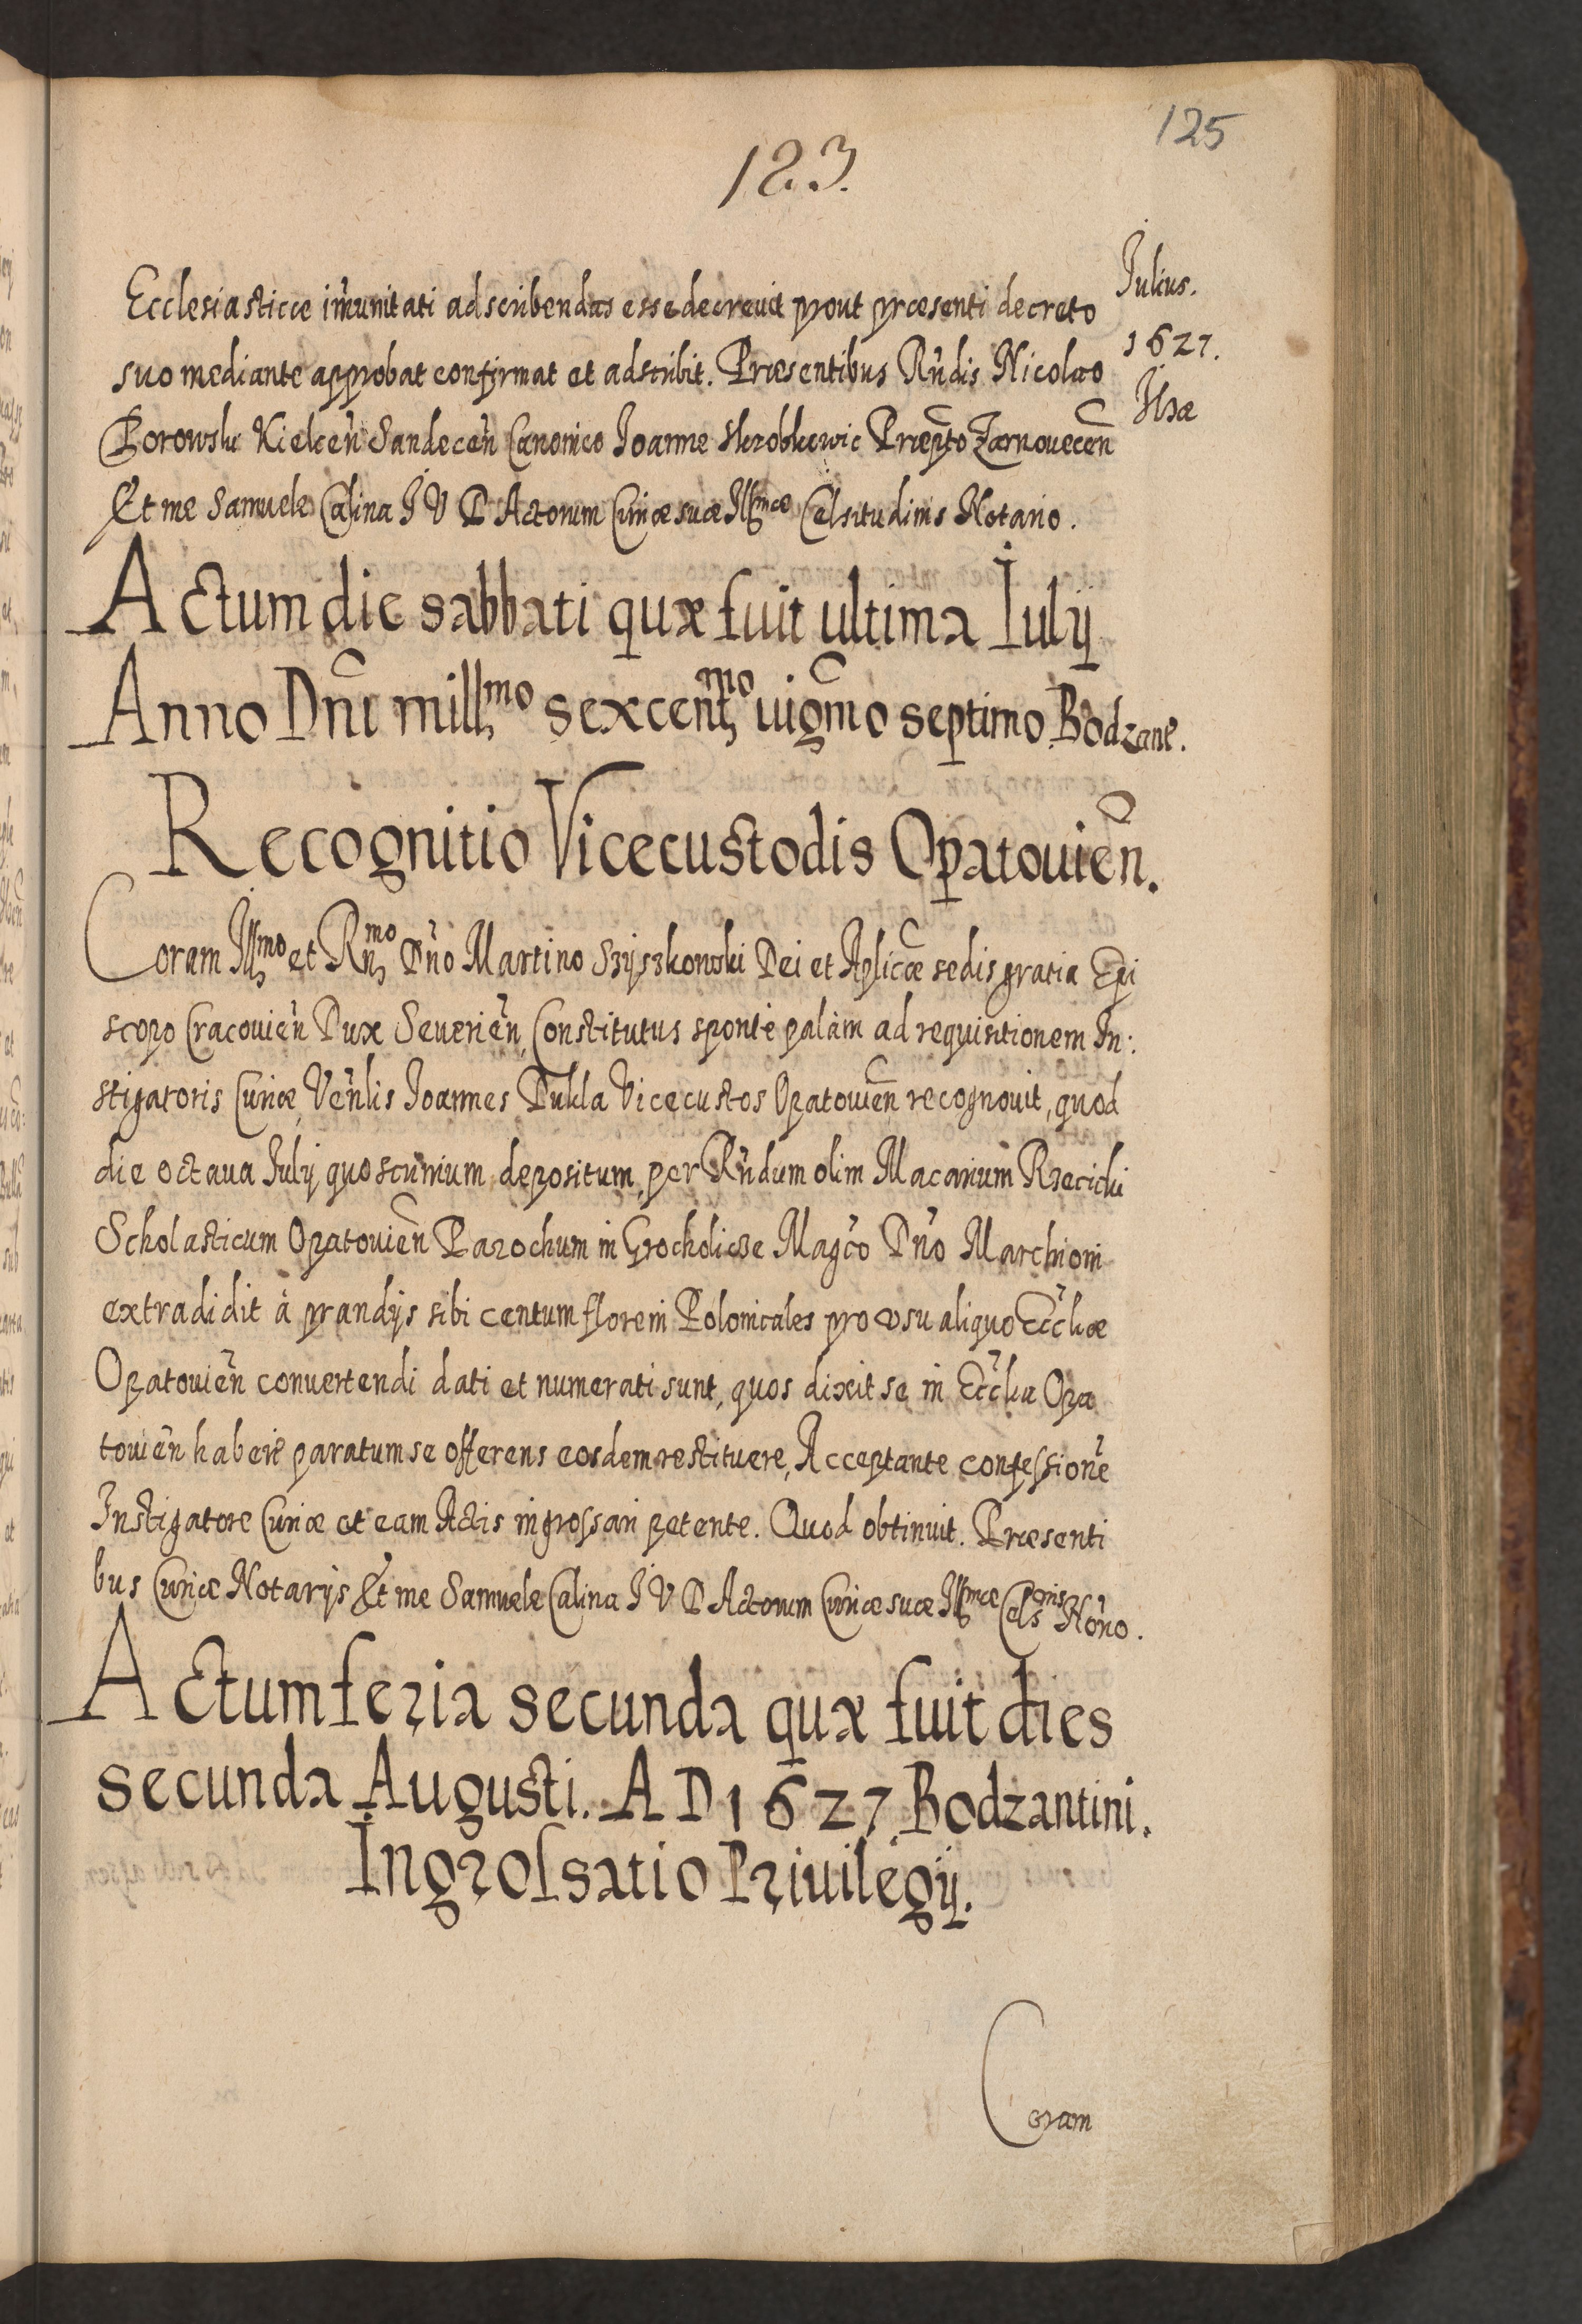 125
123.
Iulius.
1627.
Ilzæ
Ecclesiasticæ im̃unitati adscribendas esse decreuit prout præsenti decreto
suo mediante approbat confirmat et adscribit. Præsentibus Rñdis Nicolao
Borowski Kielceñ Sandeceñ Canonico Joanne Skrobkowic Præpto Zarnouecen
Et me Samuele Calina J V D Actorum Curiæ suæ Illmæ Celsitudinis Notario.
Actum die sabbati quæ fuit ultima Iulij
Anno Dni millmo sexcentmo uigmo septimo Bodzane.
Recognitio Vicecustodis Opatouien.
Coram Illmo et Rnmo Dño Martino Szyszkowski Dei et Aplicæ sedis gratia Epi
scopo Cracouieñ Dux Seuerieñ, Constitutus spontè palàm ad requisitionem In:
stigatoris Curiæ Venlis Joannes Dukla Vicecustos Opatouien recognouit, quod
die octaua Iulij quo scrinium depositum per Rñdum olim Macarium Rzecicki
Scholasticum Opatouien Parochum in Grocholicze Magco Dño Marchioni
extradidit à prandijs sibi centum floreni Polonicales pro vsu aliquo Eccliæ
Opatouieñ conuertendi dati et numerati sunt, quos dixit se in Ecclia Opa
touieñ habere paratum se offerens eosdem restituere, Acceptante confessione
Instigatore Curiæ et eam Actis ingrossari petente. Quod obtinuit. Præsenti
bus Curiæ Notarijs Et me Samuele Calina J V D Actorum Curiæ suæ Illmæ Celsnis Nono.
Actum feria secunda quæ fuit dies
secunda Augusti. A D 1627 Bodzantini.
Ingrossatio Priuilegij.
Coram